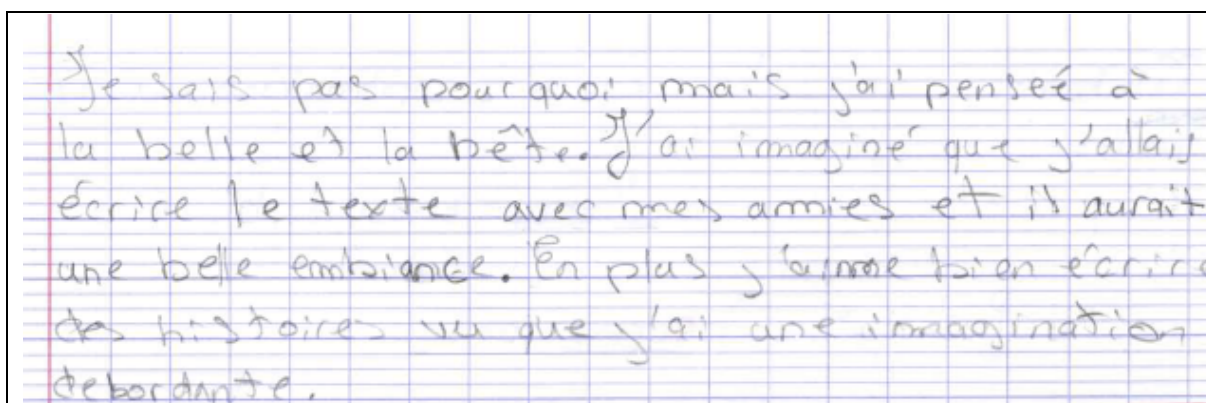 Je sais pas pourquoi mais j'ai penseé à
la belle et la bête. J'ai imaginé que j'allais
écrire le texte avec mes amies et il aurait
une belle embiance. En plus j'aimme bien écrire
des histoires vu que j'ai une immagination
debordante.